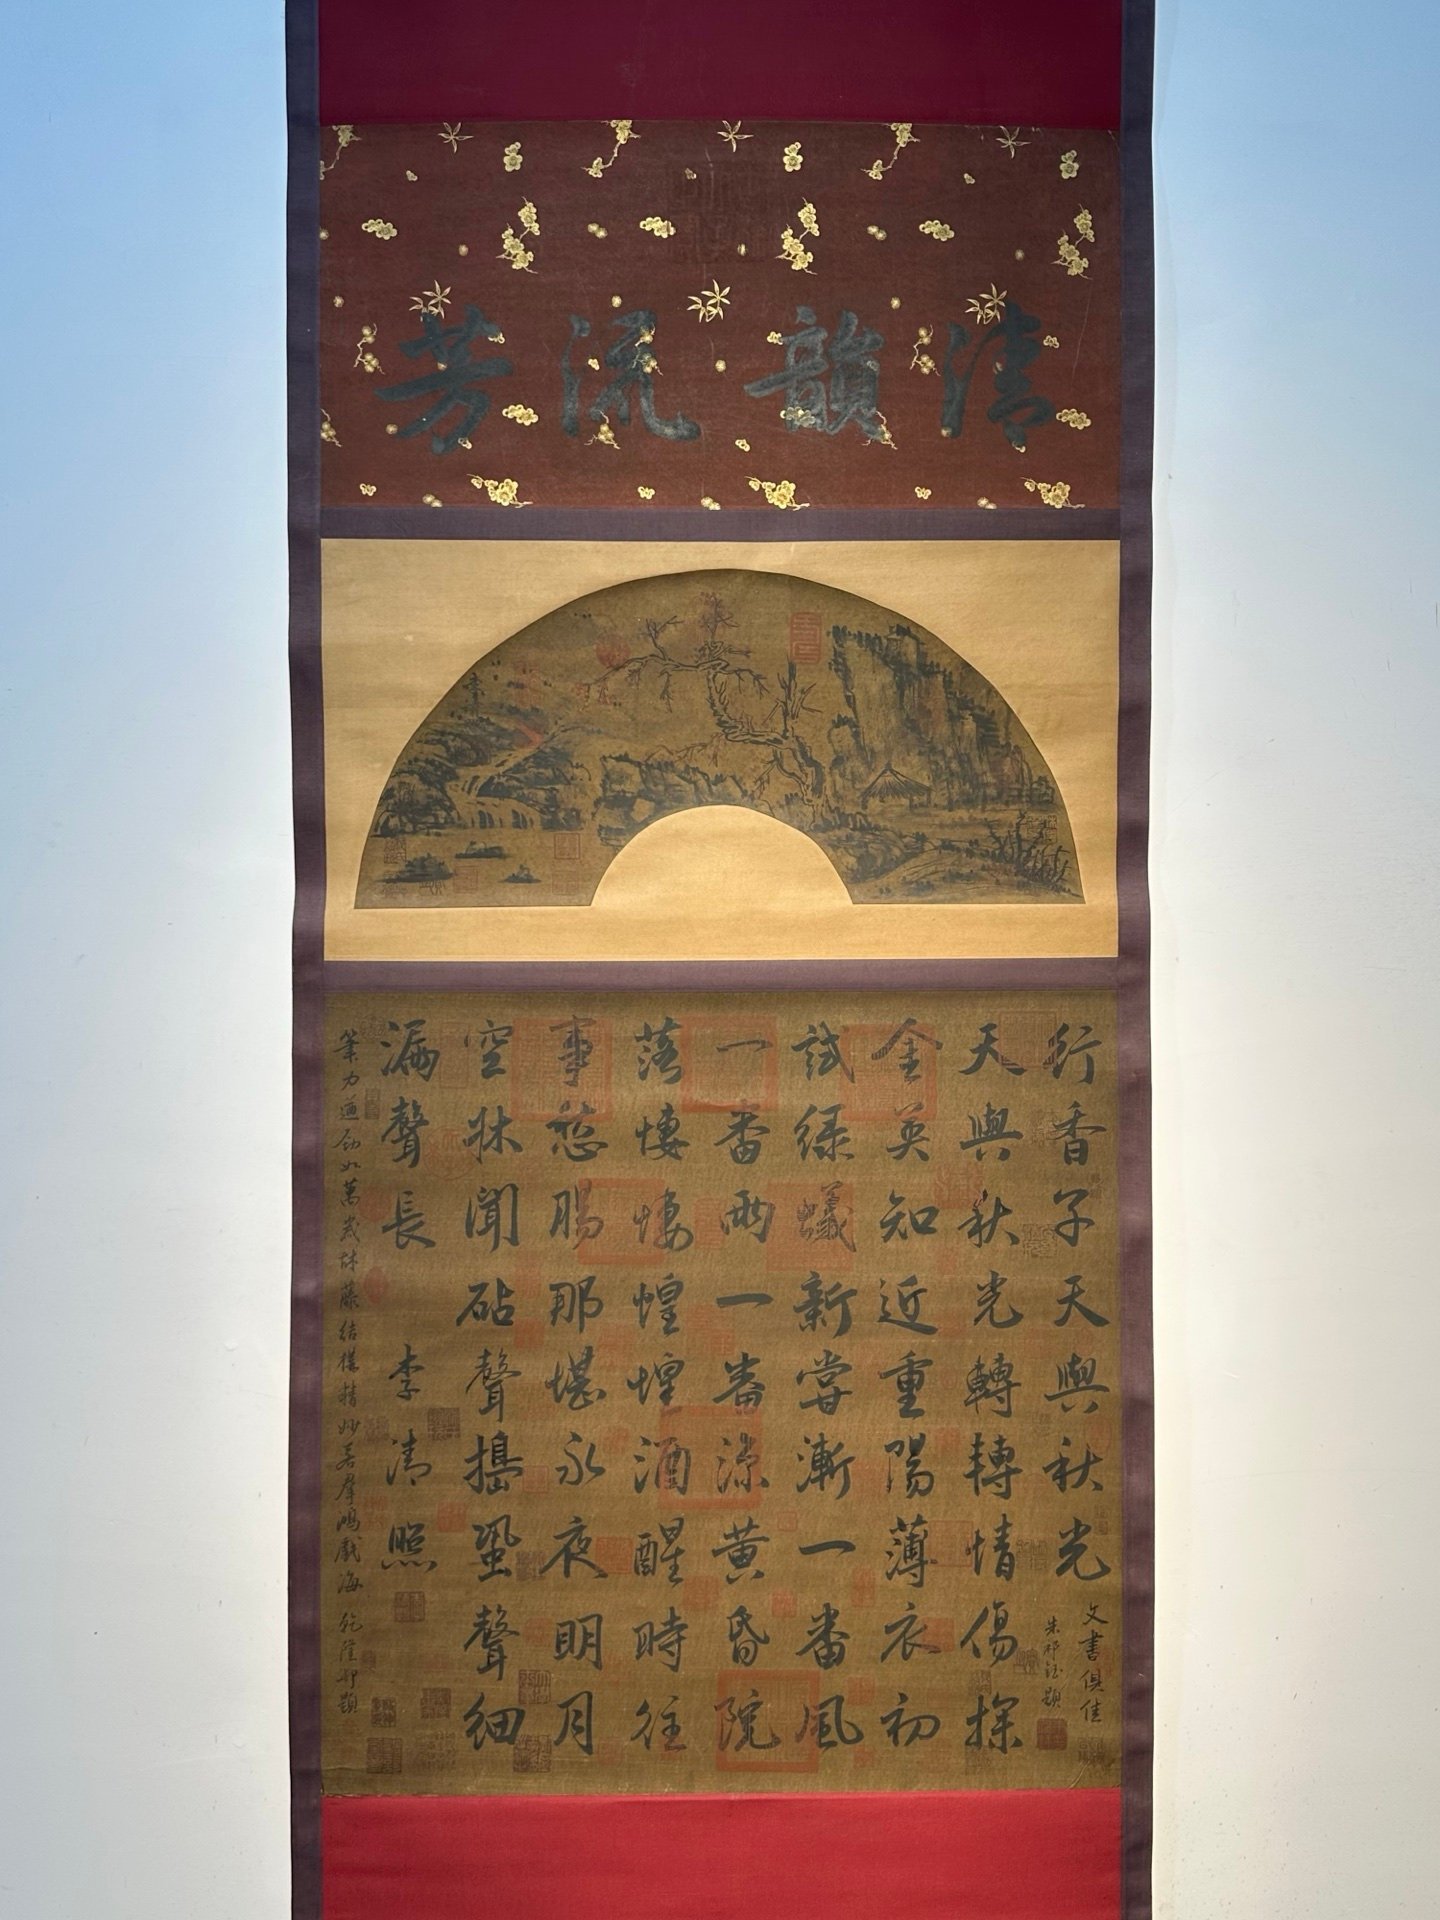 清韻流芳
行香子天與秋光
文書俱佳
朱祁鈺題
天與秋光轉轉情傷探
金英知近重陽薄衣初
試綠蟻新嘗漸一番風
一番雨一番涼黄昏院
落悽悽惶惶酒醒時往
事愁腸那堪永夜明月
空牀聞砧聲搗蛩聲細
漏聲長 李清照
筆力遒勁如萬歲枯藤結構精妙若羣鴻戲海 乾隆御題